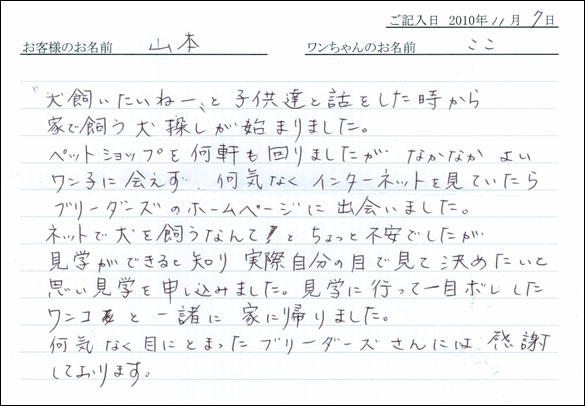 ご記入日 2010年 11 月 7 日
お客様のお名前 山本 ワンちゃんのお名前 ここ
"犬飼いたいねー"と 子供達と話をした時から
家で飼う犬探しが始まりました。
ペットショップを何軒も回りましたが なかなか よい
ワン子に会えず、何気なくインターネットを見ていたら
ブリーダーズのホームページに出会いました。
ネットで犬を飼うなんて!と ちょっと不安でしたが
見学ができると知り 実際自分の目で見て決めたいと
思い見学を申し込みました。見学に行って一目ボレした
ワンコ と一諸に 家に帰りました。
何気なく目にとまったブリーダーズさんには 感謝
しております。